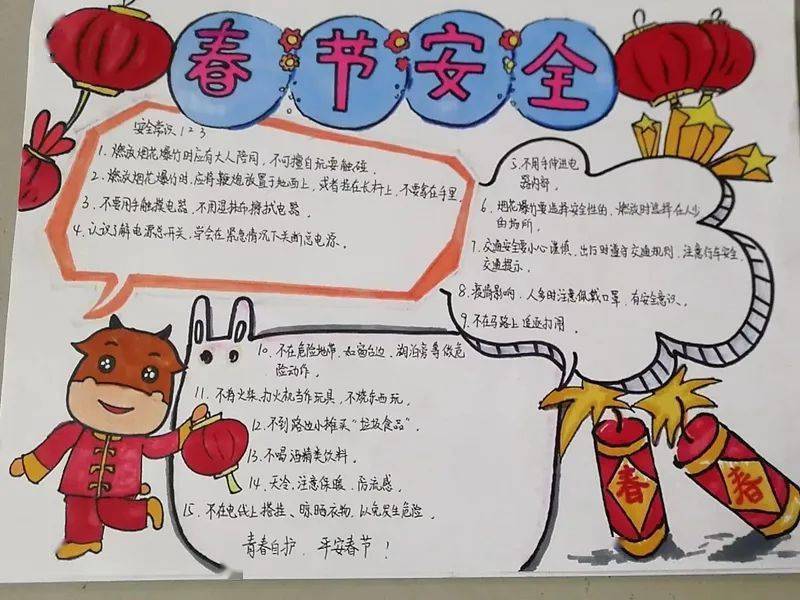 春节安全
安全常识123
1. 燃放烟花爆竹时应有大人陪同，不可擅自玩耍触碰.
2. 燃放烟花爆竹时，应将鞭炮放置于地面上，或者挂在长杆上，不要拿在手里.
3. 不要用手触摸电器，不用湿抹布擦拭电器.
4. 认识了解电源总开关，学会在紧急情况下关断总电源.
5. 不用手伸进电
器内部.
6. 烟花爆竹要选择安全性的，燃放时选择在人少
的场所.
7. 交通安全要小心谨慎，出行时遵守交通规则，注意行车安全，
交通提示.
8. 疫情影响，人多时注意佩戴口罩，有安全意识.
9. 不在马路上追逐打闹.
10. 不在危险地带，如窗台边、湖泊旁等做危
险动作.
11. 不有火柴、打火机当作玩具，不烧东西玩.
12. 不到路边小摊买“垃圾食品”.
13. 不喝酒精类饮料.
14. 天冷，注意保暖，防流感.
15. 不在电线上搭挂、晾晒衣物，以免发生危险.
青春自护，平安春节！
春
春